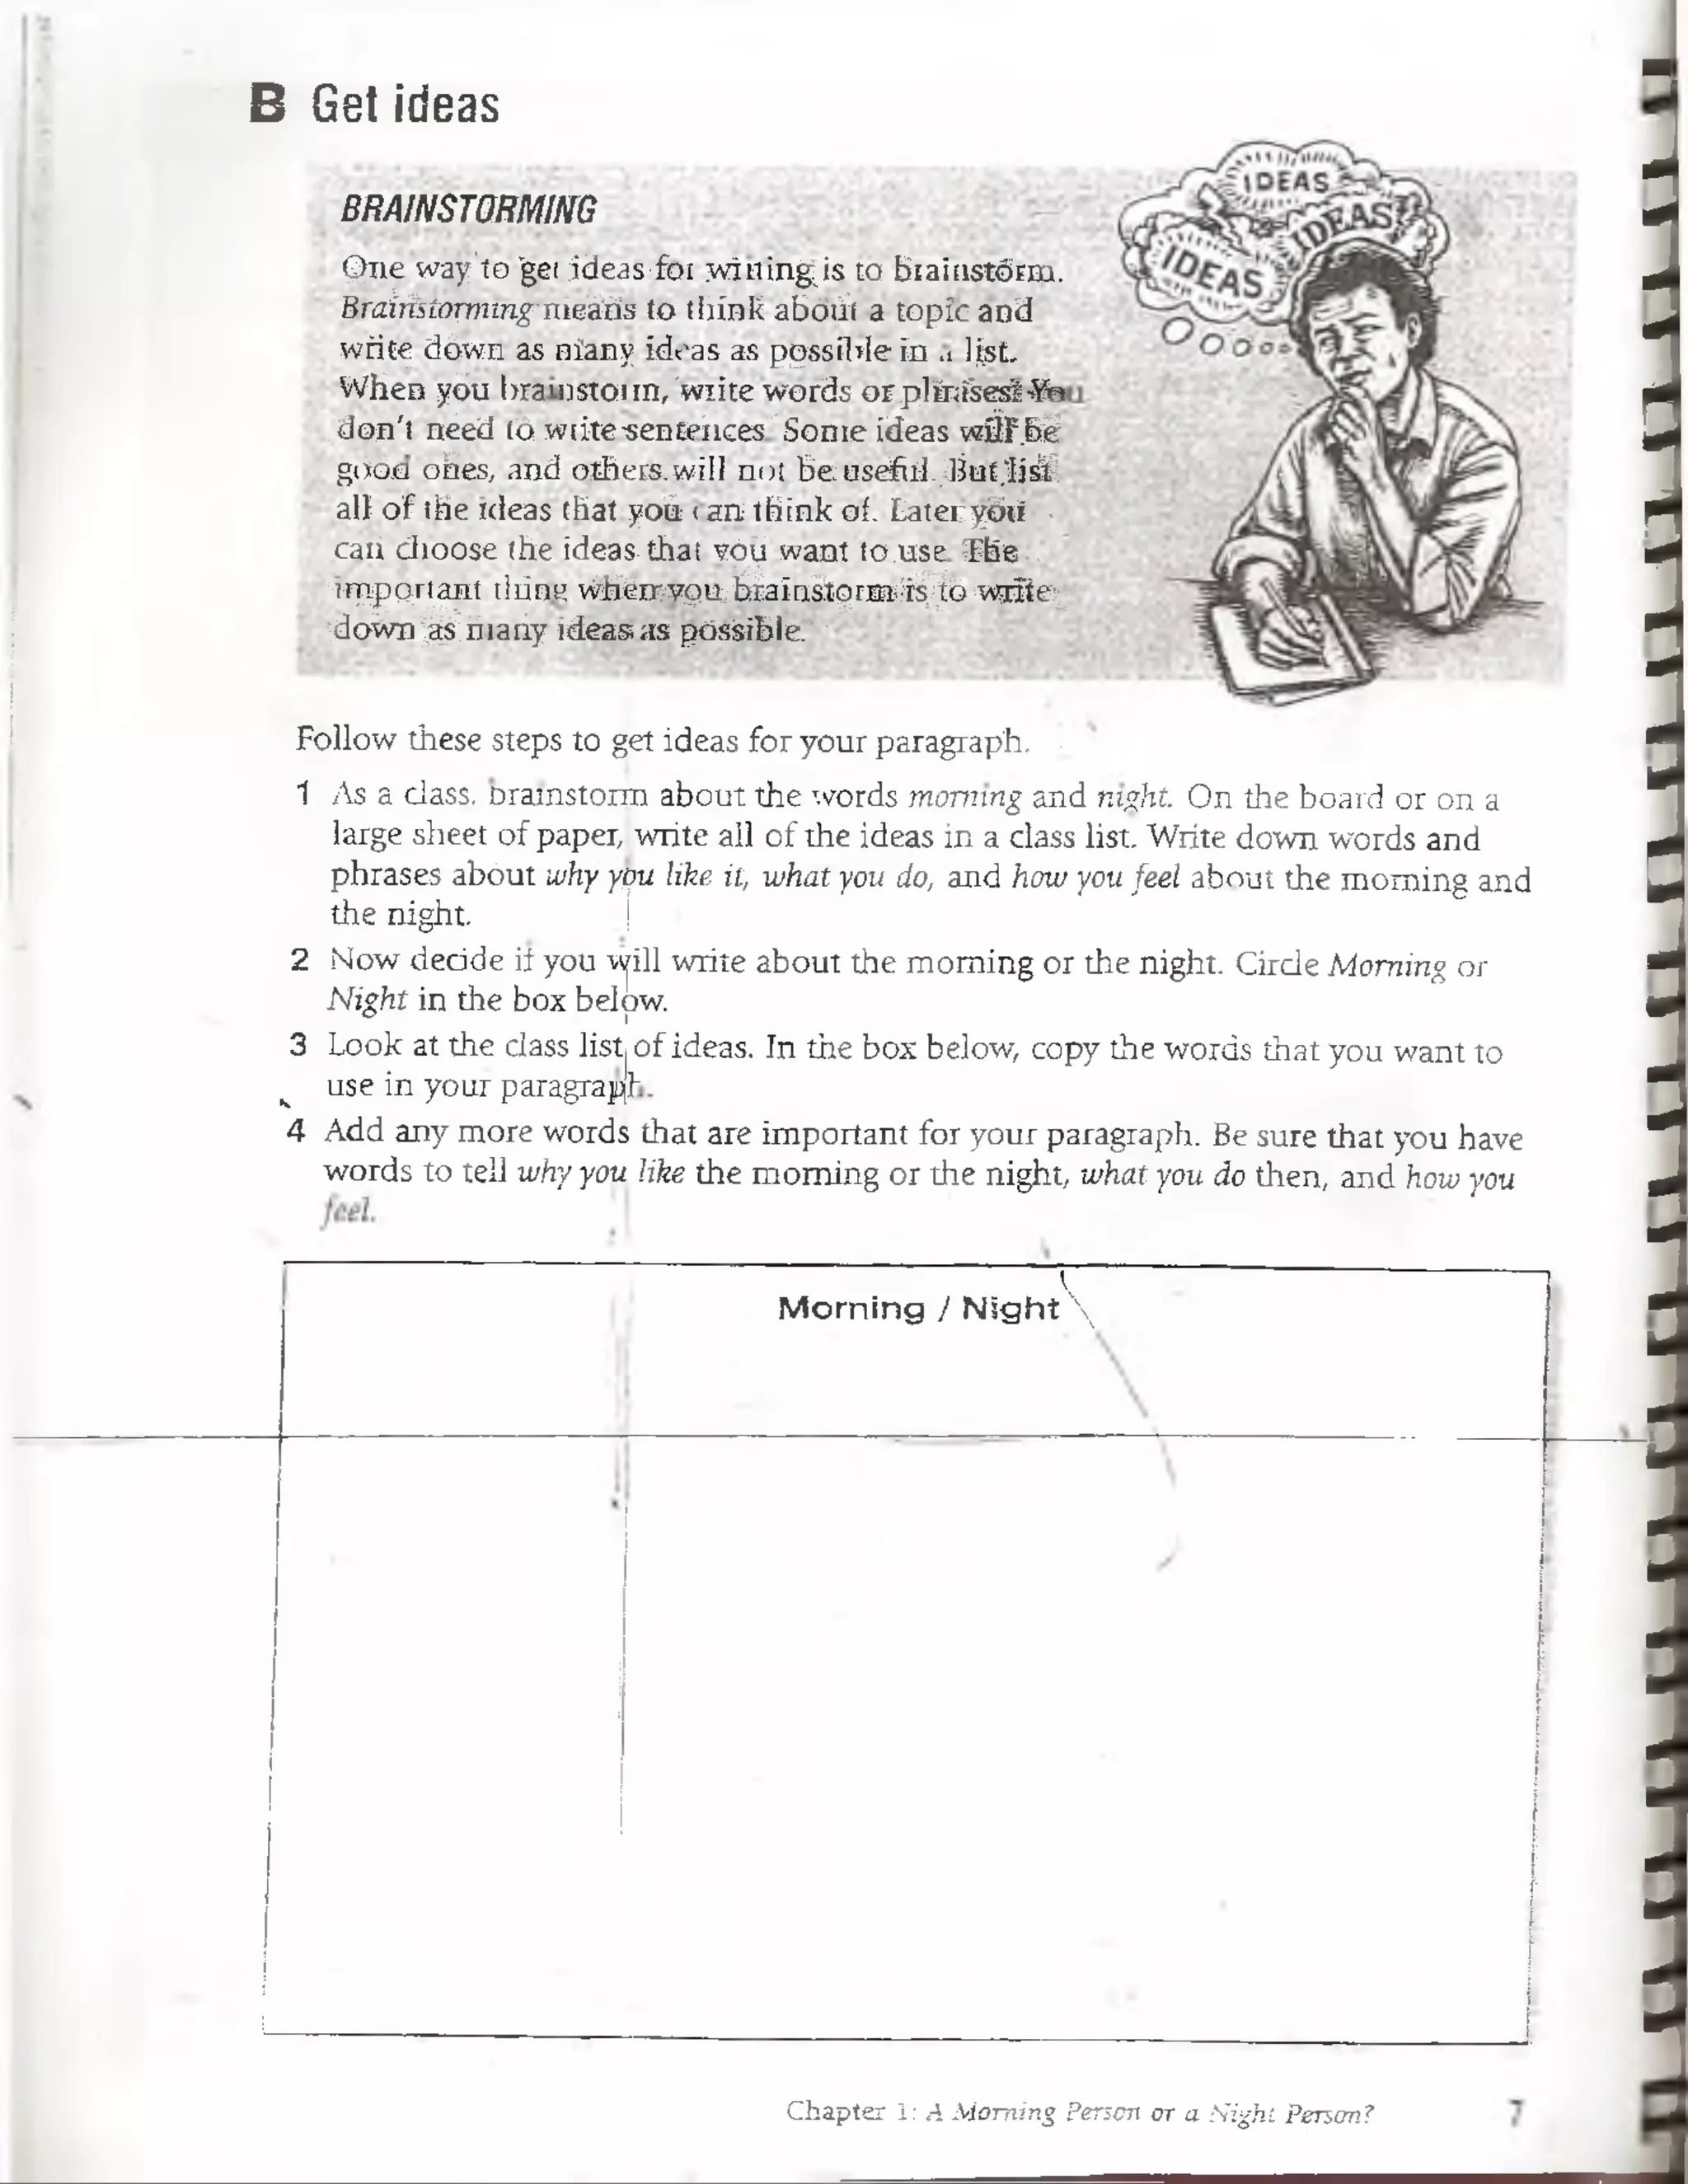 B Get ideas
BRAINSTORMING
One way to get ideas for writing is to brainstorm.
Brainstorming means to think about a topic and
write down as many ideas as possible in a list.
When you brainstorm, write words or phrases. You
don't need to write sentences. Some ideas will be
good ones, and others will not be useful. But list
all of the ideas that you can think of. Later you
can choose the ideas that you want to use. The
important thing when you brainstorm is to write
down as many ideas as possible.
IDEAS
IDEAS
IDEAS
Follow these steps to get ideas for your paragraph.
1 As a class, brainstorm about the words morning and night. On the board or on a
large sheet of paper, write all of the ideas in a class list. Write down words and
phrases about why you like it, what you do, and how you feel about the morning and
the night.
2 Now decide if you will write about the morning or the night. Circle Morning or
Night in the box below.
3 Look at the class list of ideas. In the box below, copy the words that you want to
use in your paragraph.
4 Add any more words that are important for your paragraph. Be sure that you have
words to tell why you like the morning or the night, what you do then, and how you
feel.
Morning / Night
Chapter 1: A Morning Person or a Night Person? 7